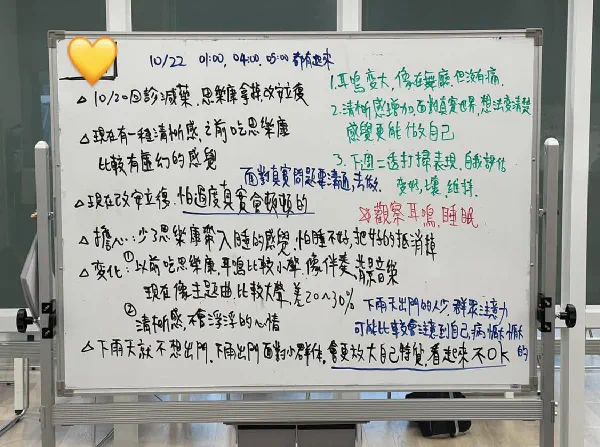 10/22 01:00, 04:00, 05:00 都有起來
△10/20回診減藥, 思樂康拿掉改安立復
△現在有一種清晰感, 之前吃思樂康
比較有虛幻的感覺
面對真實問題要溝通, 去做
△現在改安立復, 怕過度真實當頓頓的
△擔心: 少了思樂康帶入睡的感覺, 怕睡不好, 把好的抵消掉
△變化: ①以前吃思樂康, 耳鳴比較小聲, 像伴奏, 背景音樂
現在像主題曲, 比較大聲, 差20~30%
②清晰感, 不會浮浮的心情
△下雨天就不想出門, 下雨出門面對小群体, 會更放大自己特質, 看起來不OK
1. 耳鳴變大, 像在舞廳, 但沒有痛
2. 清晰感增加, 面對真實世界, 想法變清楚
感覺更能做自己
3. 下週二透打掃表現, 自我評估
變好, 壞, 維持
觀察耳鳴, 睡眠
下雨天出門的人少, 群眾注意力
可能比較會注意到自己, 病懨懨的